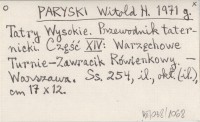 PARYSKI Witold H. 1971 g.
Tatry Wysokie. Przewodnik tater-
nicki. Część XIV: Warzęchowe
Turnie-Zawracik Rówienkowy. —
Warszawa. Ss. 254, il., okł. (il.),
cm 17 x 12.
1068